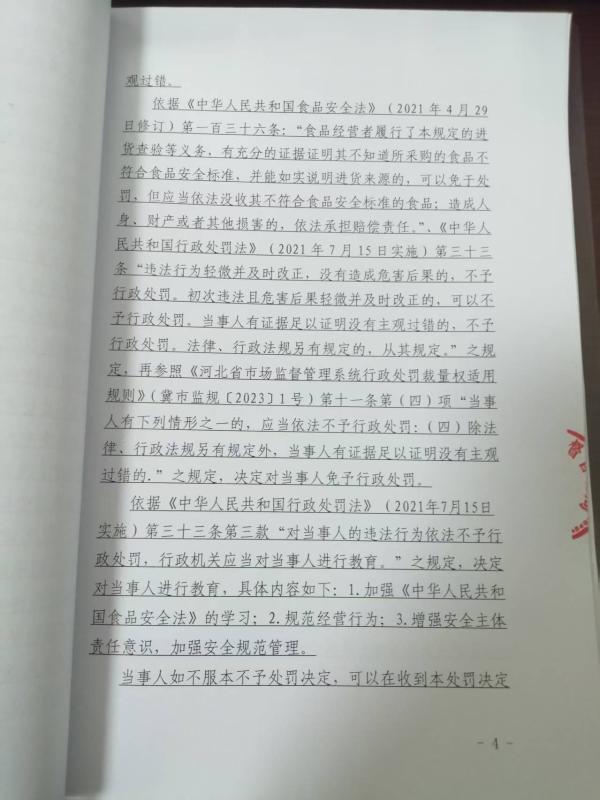 观过错。
依据《中华人民共和国食品安全法》（2021年4月29
日修订）第一百三十六条：“食品经营者履行了本规定的进
货查验等义务，有充分的证据证明其不知道所采购的食品不
符合食品安全标准，并能如实说明进货来源的，可以免于处
罚，但应当依法没收其不符合食品安全标准的食品；造成人
身、财产或者其他损害的，依法承担赔偿责任。”、《中华人
民共和国行政处罚法》（2021年7月15日实施）第三十三
条“违法行为轻微并及时改正，没有造成危害后果的，不予
行政处罚。初次违法且危害后果轻微并及时改正的，可以不
予行政处罚。当事人有证据足以证明没有主观过错的，不予
行政处罚。法律、行政法规另有规定的，从其规定。”之规
定，再参照《河北省市场监督管理系统行政处罚裁量权适用
规则》（冀市监规〔2023〕1号）第十一条第（四）项“当事
人有下列情形之一的，应当依法不予行政处罚：（四）除法
律、行政法规另有规定外，当事人有证据足以证明没有主观
过错的.”之规定，决定对当事人免予行政处罚。
依据《中华人民共和国行政处罚法》（2021年7月15日
实施）第三十三条第三款“对当事人的违法行为依法不予行
政处罚，行政机关应当对当事人进行教育。”之规定，决定
对当事人进行教育，具体内容如下：1.加强《中华人民共和
国食品安全法》的学习；2.规范经营行为；3.增强安全主体
责任意识，加强安全规范管理。
当事人如不服本不予处罚决定，可以在收到本处罚决定
- 4 -